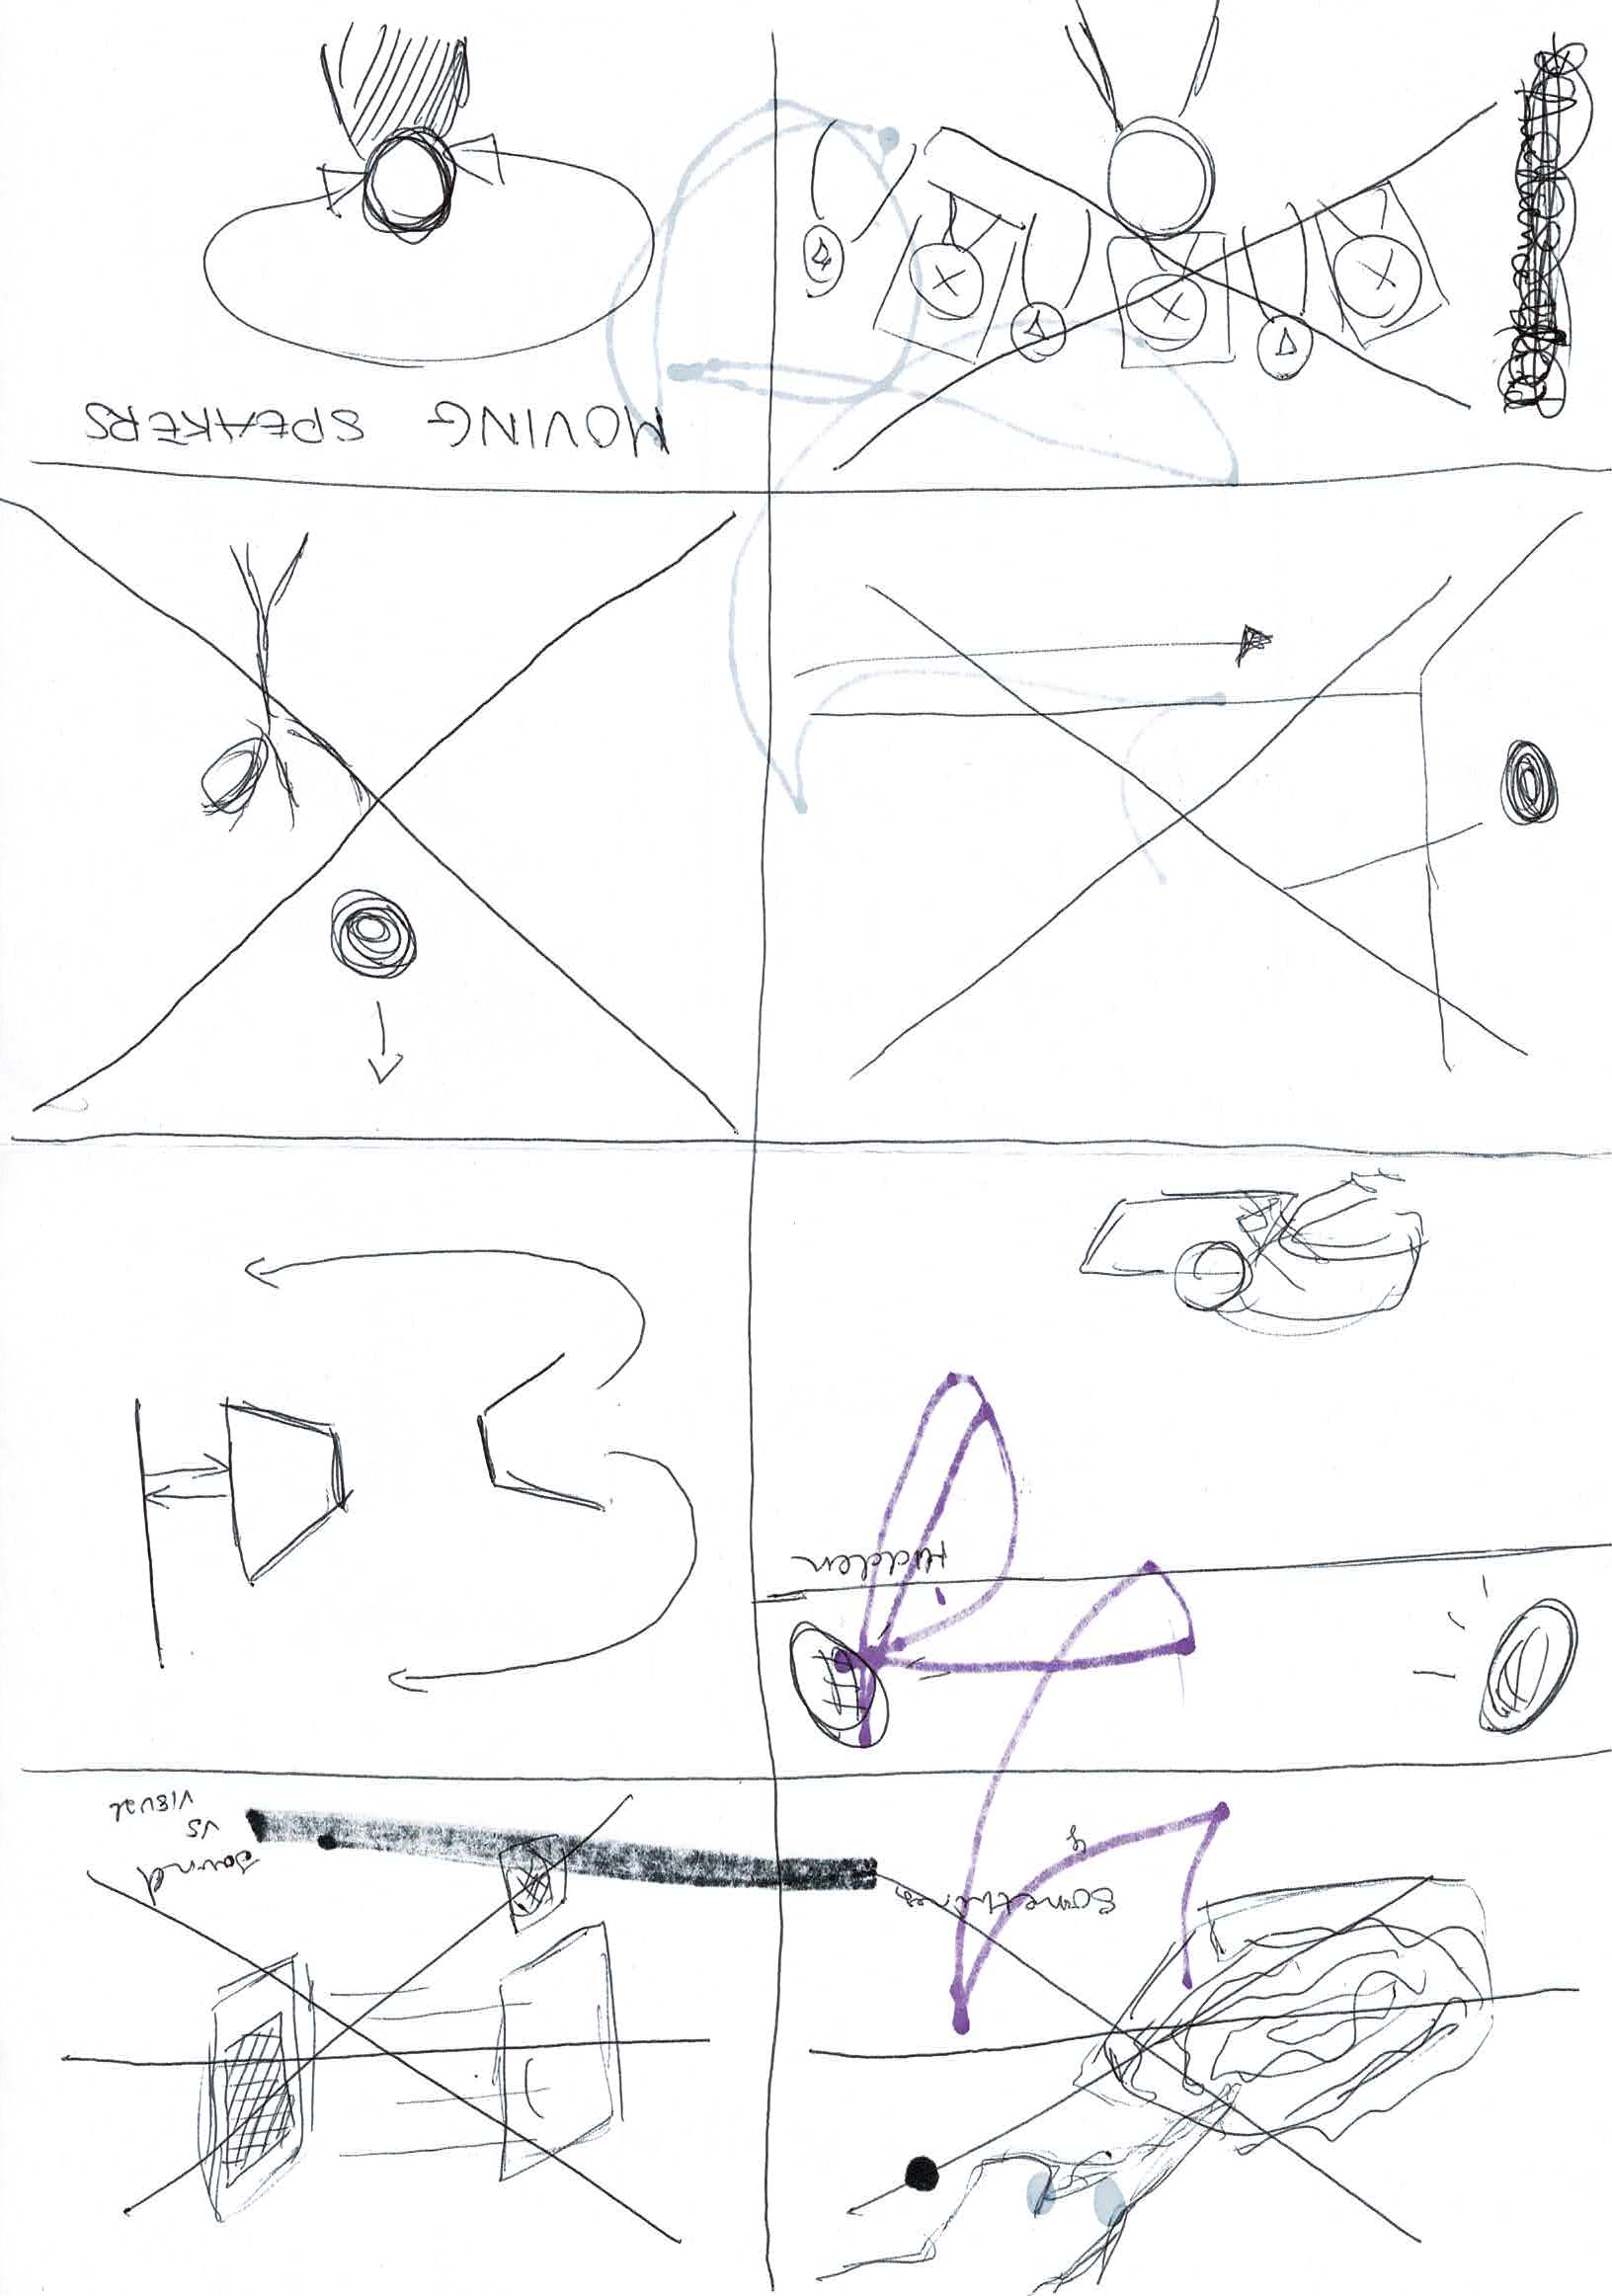 Something
sound
vs
visual
Hidden
MOVING SPEAKERS